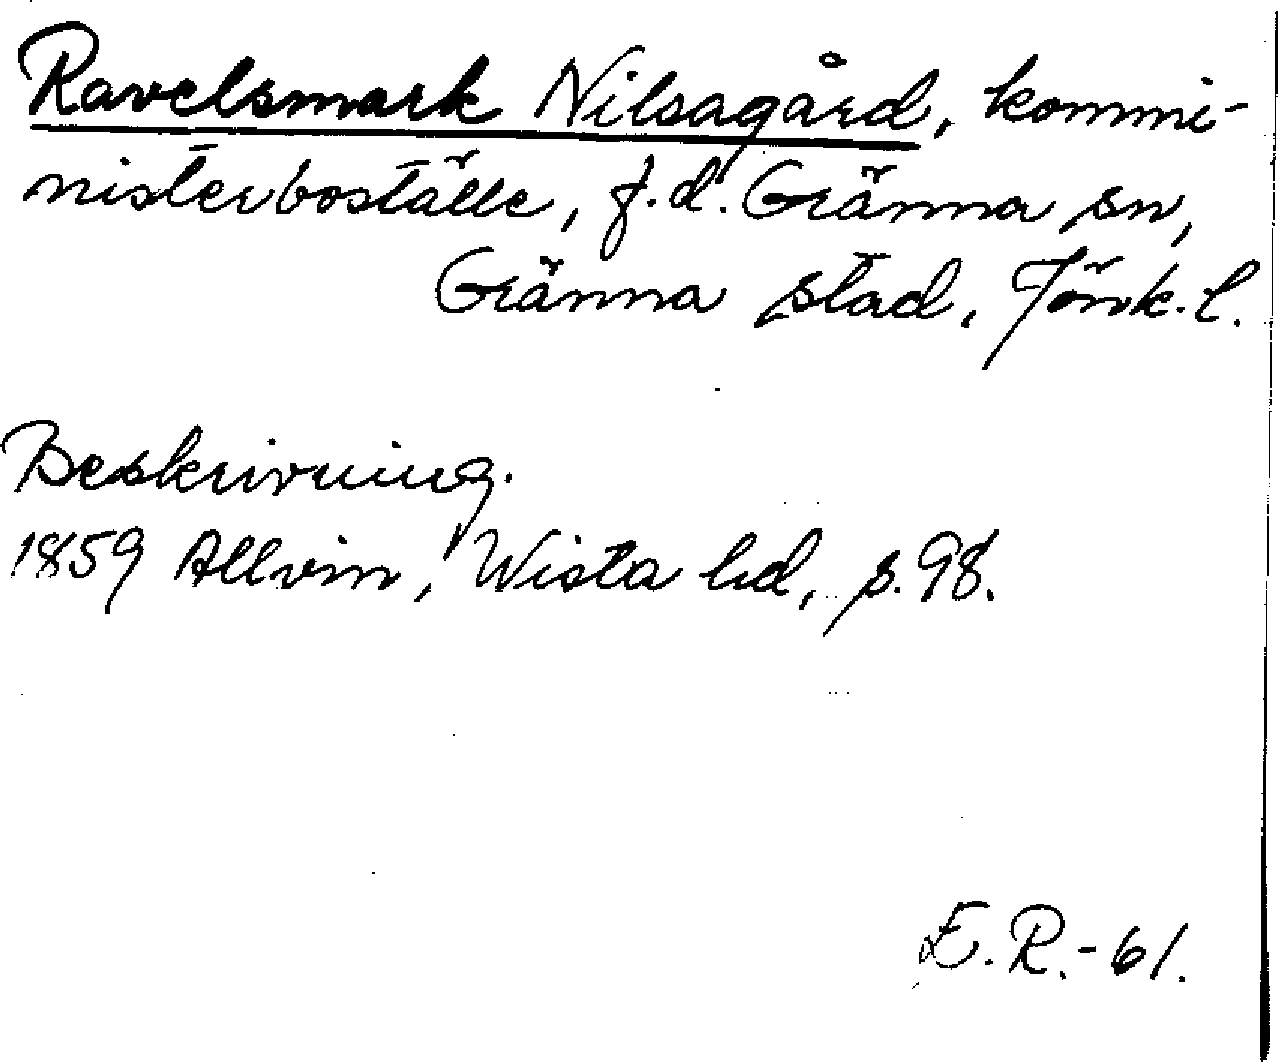 Ravelsmark Nilsagård, kommi-
nisterboställe, f.d. Gränna sn,
Gränna stad, Jönk. l.
Beskrivning.
1859 Allvin, Wista hd, s. 98.
E.R.-61.